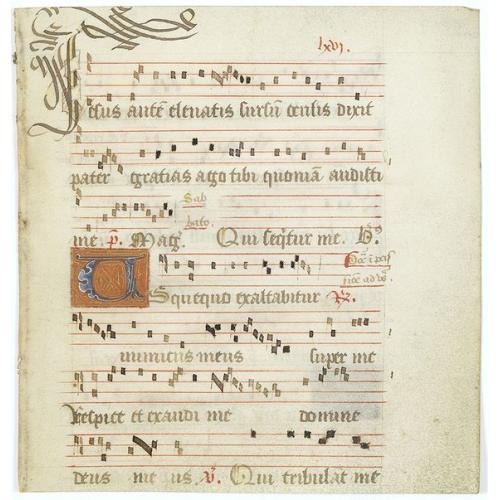 lxvi.
Iesus autē eleuatis sursū oculis dixit
pater gratias ago tibi quoniā audisti
Sab
bato.
me p̄. Mag̃. Qui seq̄tur me.
Usquequo exaltabitur
inimicus meus super me
Respice et exaudi me domine
deus me us ℣. Qui tribulāt me